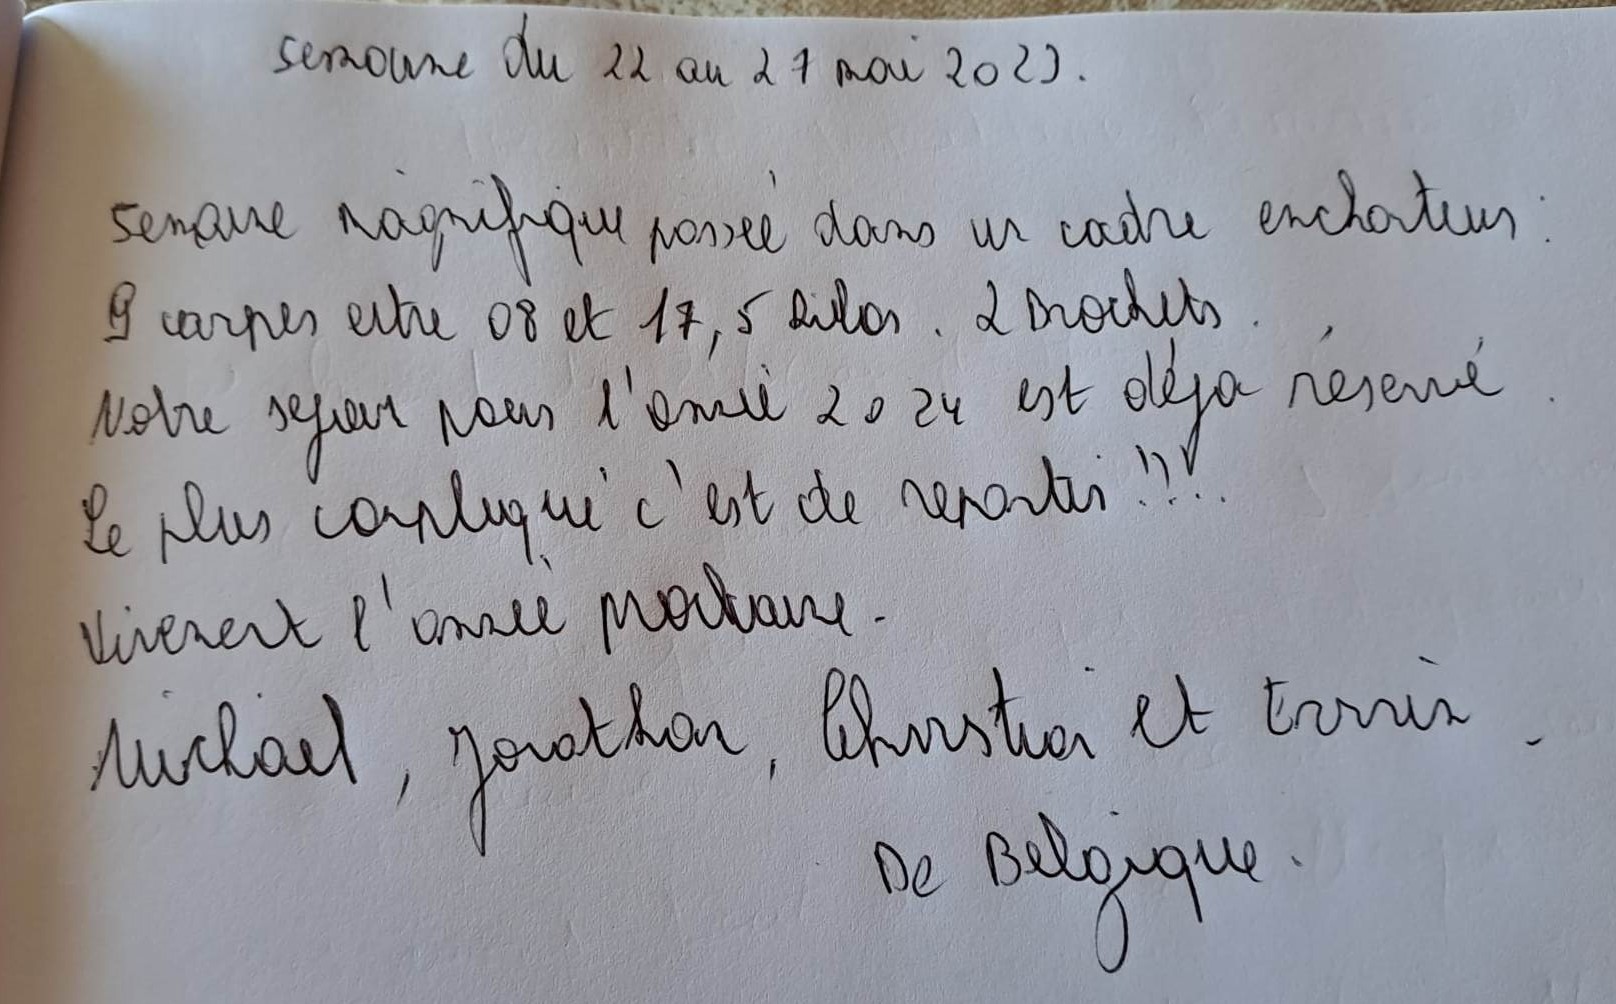 semaine du 22 au 27 mai 2023.
Semaine magnifique passée dans un cadre enchanteur :
9 carpes entre 08 et 17,5 kilos. 2 Brochets.
Notre séjour pour l'année 2024 est déjà réservé.
Le plus compliqué c'est de repartir !!!...
Vivement l'année prochaine.
Michael, Jonathan, Christian et
De Belgique.